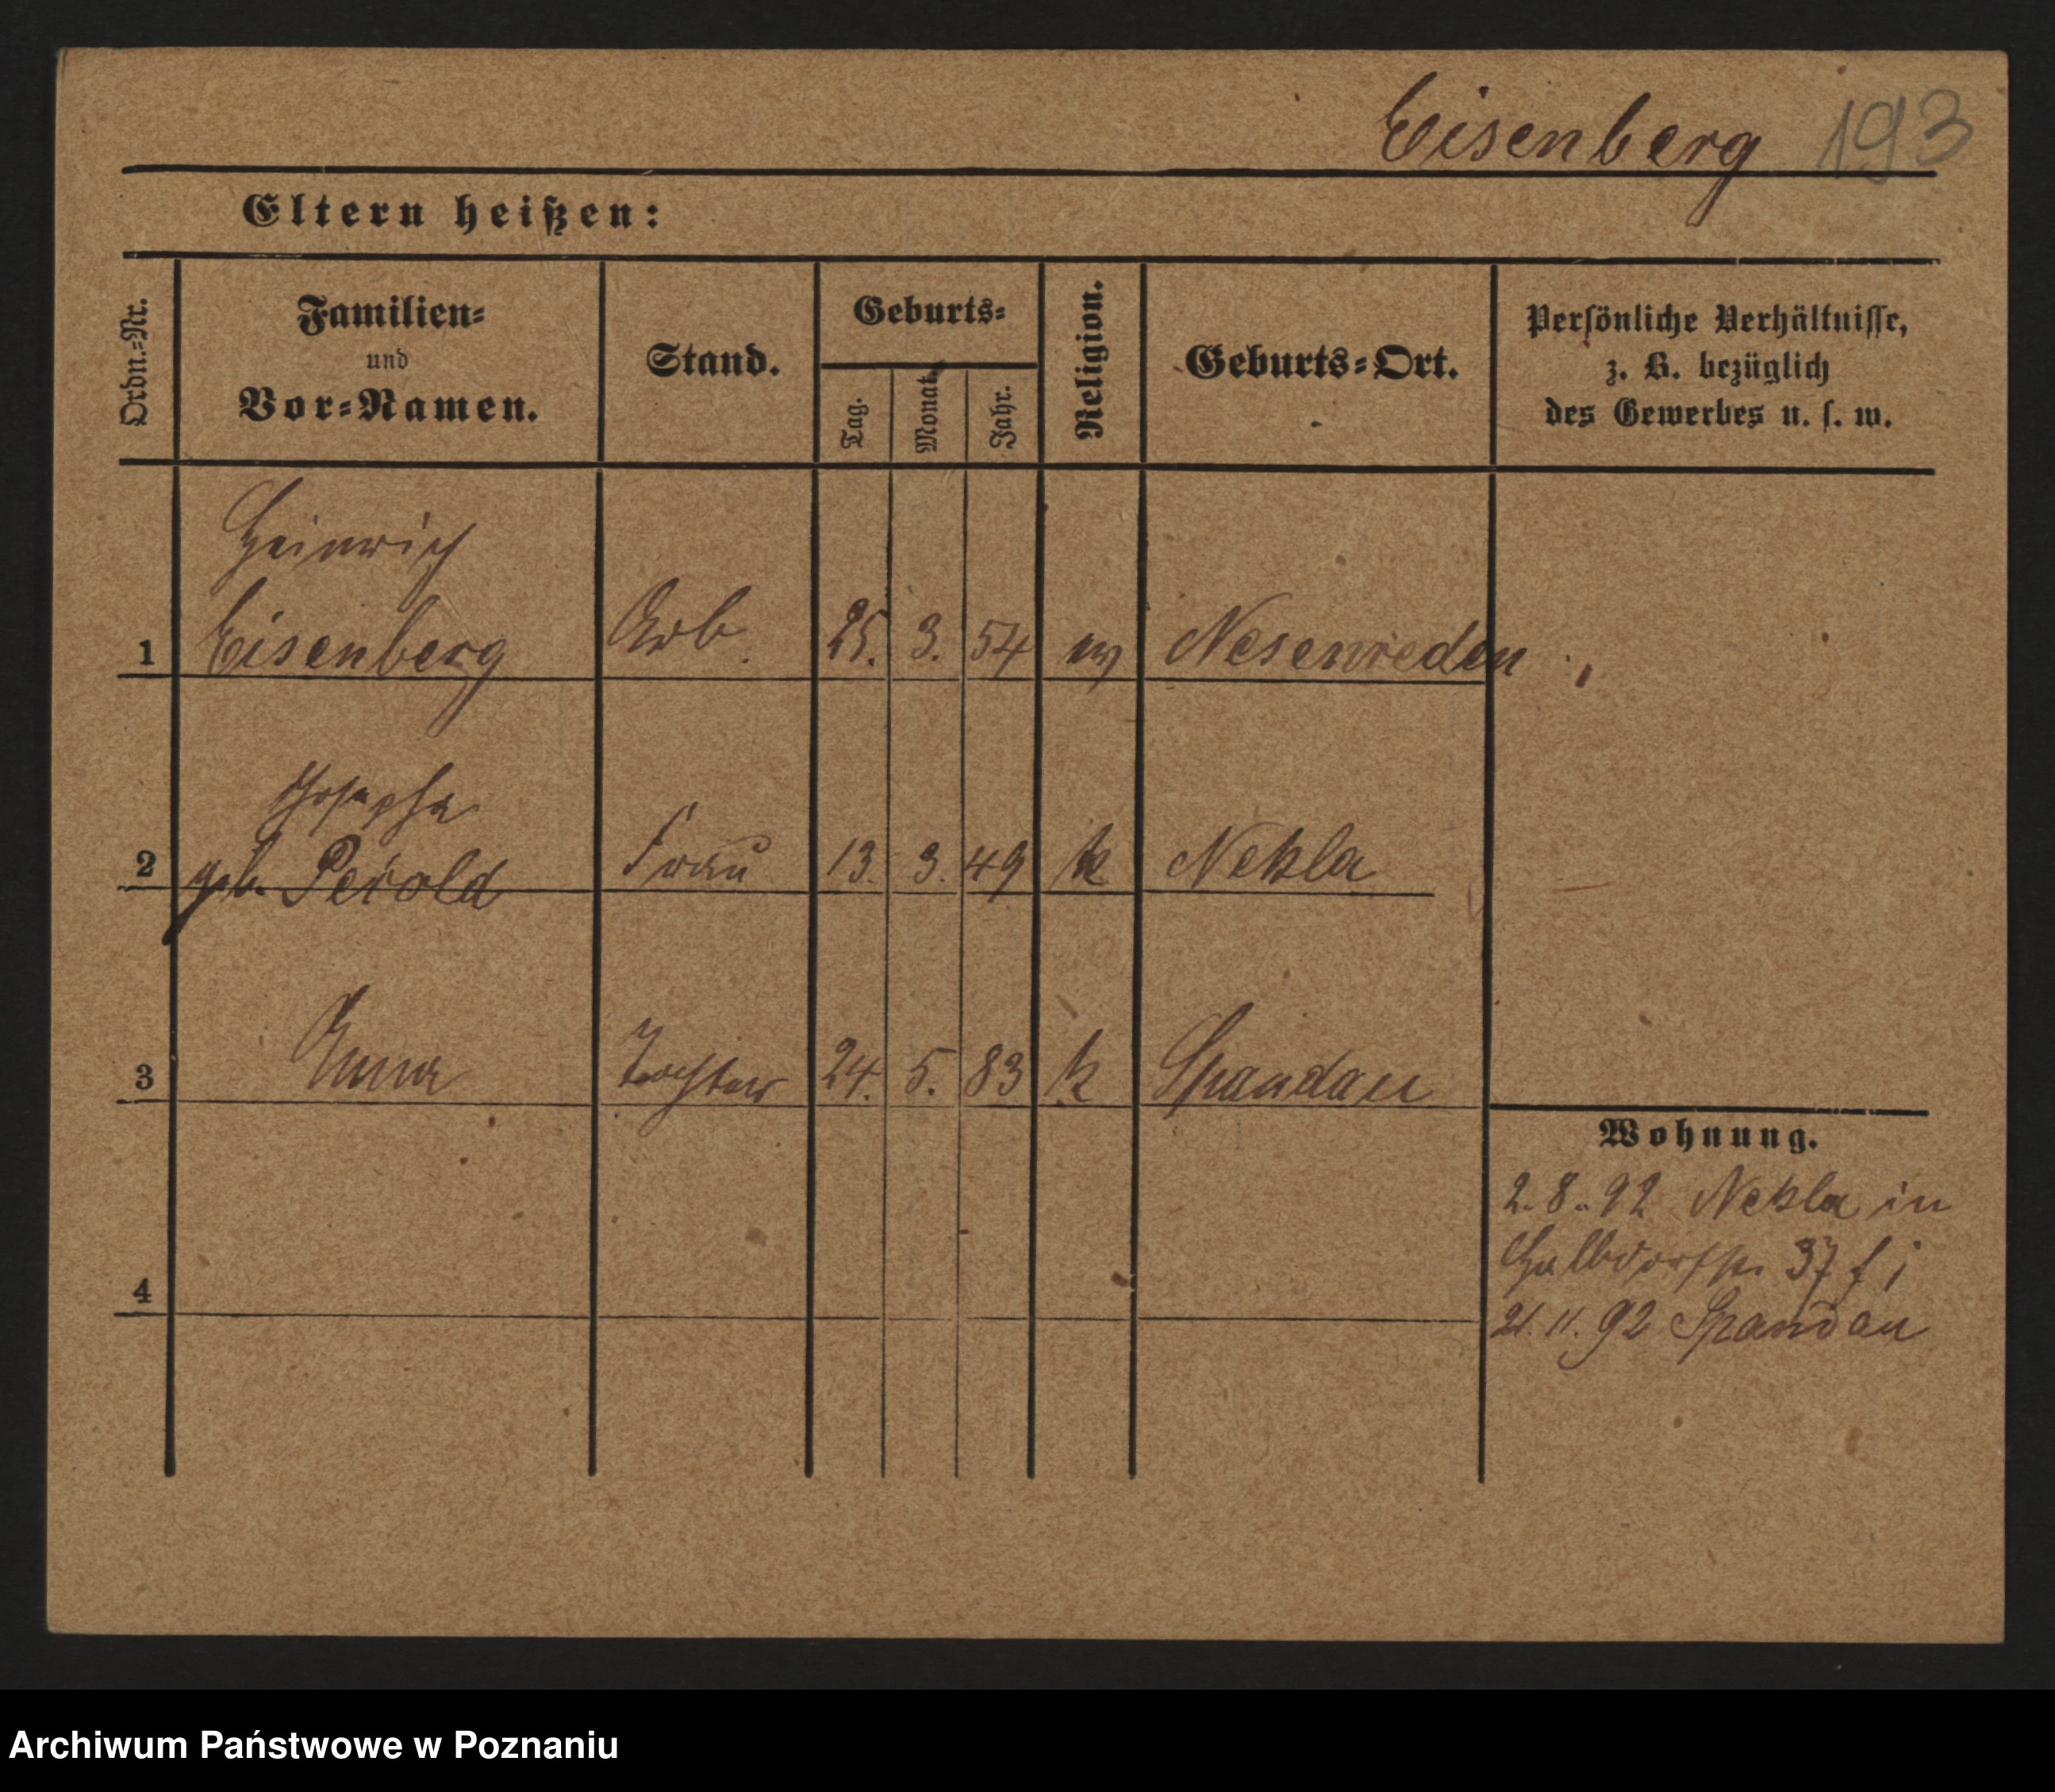 Eisenberg 193
Eltern heißen:
Ordn.-Nr.
Familien-
und
Vor-Namen.
Stand.
Geburts-
Tag.
Monat.
Jahr.
Religion.
Geburts-Ort.
Persönliche Verhältnisse,
z. B. bezüglich
des Gewerbes u. s. w.
Heinrich
1 Eisenberg Arb. 25. 3. 54 ev Nesenreden
Josepha
2 geb. Perold Frau 13. 3. 49 k Nekla
3 Anna Tochter 24. 5. 83 k Spandau
4
Wohnung.
2.8.92 Nekla in
Halbdorfstr. 37 f i
21.11.92 Spandau
Archiwum Państwowe w Poznaniu